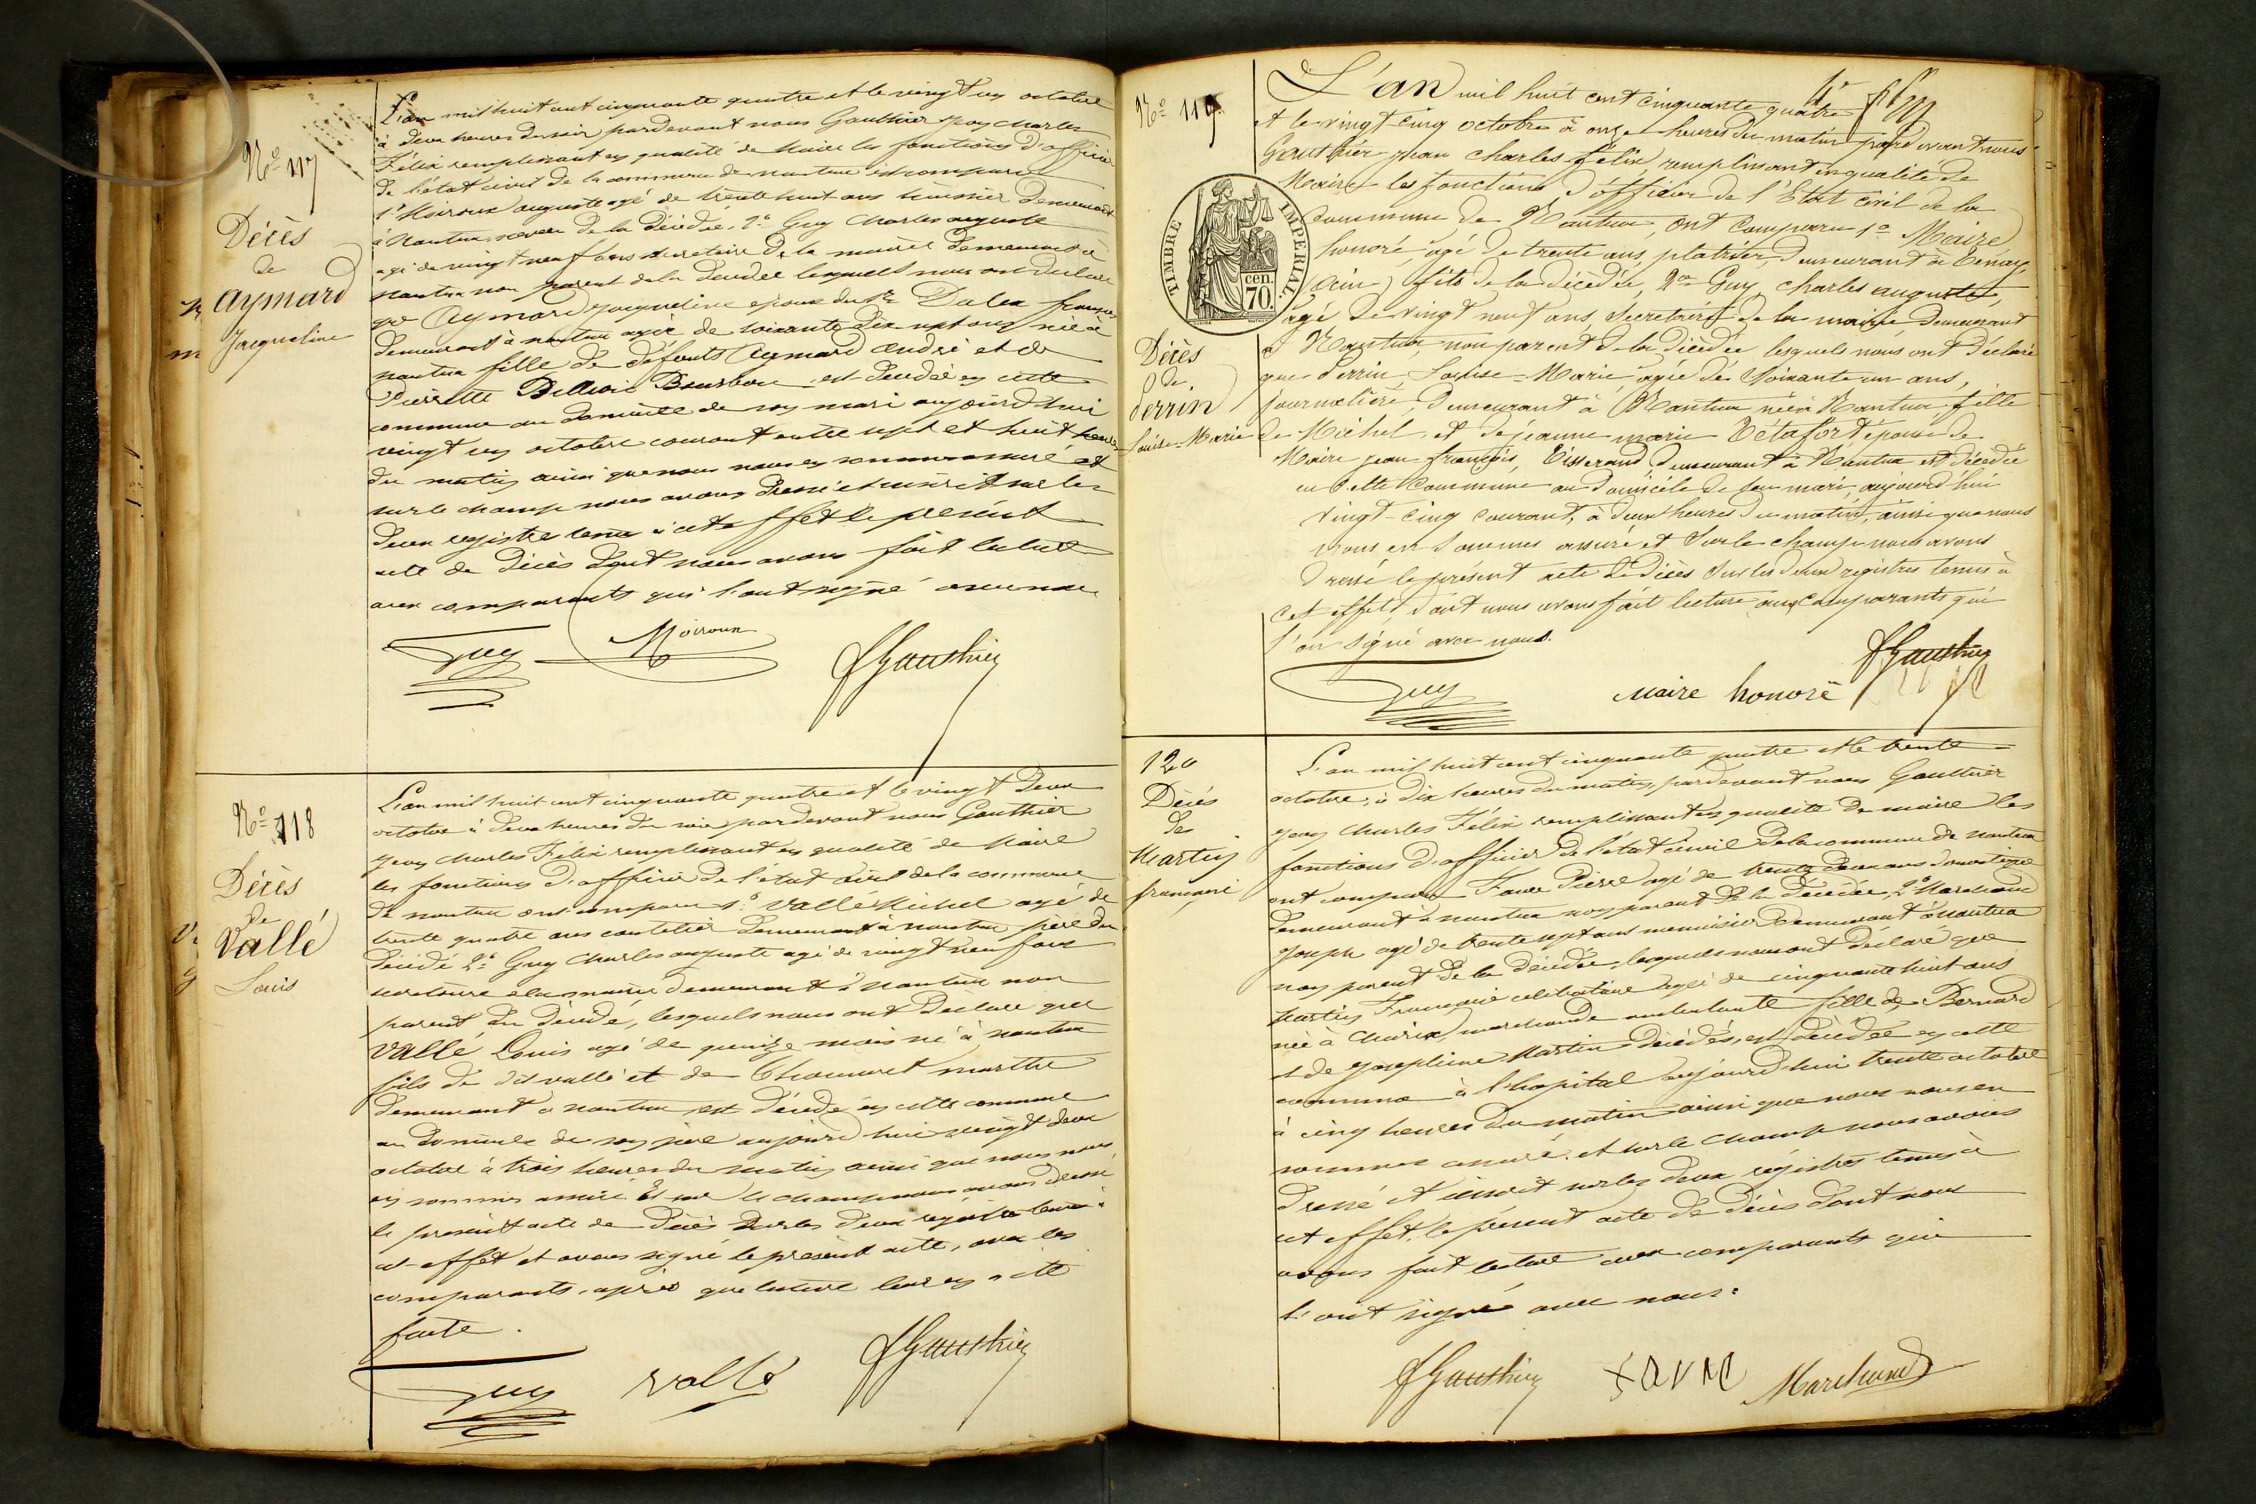 N.o 117
Décès
de
Aymard
Jacqueline
L'an mil huit cent cinquante quatre et le vingt un octobre
à deux heures du soir pardevant nous Gauthier Jean Charles
Félix remplissant en qualité de Maire les fonctions d'officier
de l'état civil de la commune de nantua est comparu
1o Moiroux auguste agé de trente huit ans huissier demeurant
à Nantua neveu de la décédée, 2o Guy Charles auguste
agé de vingt neuf ans secretaire de la mairie demeurant à
nantua non parent de la décédée lesquels nous ont déclaré
que Aymard Jacqueline epouse du Sr
demeurant à nantua agée de soixante dix sept ans née à
nantua fille de défunts Aymard andré et de
Pierrette est décédée en cette
commune au domicile de son mari aujourd'hui
vingt un octobre courant entre sept et huit heures
du matin ainsi que nous nous en sommes assuré et
sur le champ nous avons dressé et inscrit sur les
deux registre tenu à cet effet le présent
acte de décès dont nous avons fait lecture
aux comparants qui l'ont signé avec nous
Guy Moiroux
fGauthier
N.o 118
Décès
de
Vallé
Louis
L'an mil huit cent cinquante quatre et le vingt deux
octobre à deux heures du soir pardevant nous Gauthier
Jean Charles Félix remplissant en qualité de Maire
les fonctions d'officier de l'état civil de la commune
de nantua ont comparu 1o Vallé Michel agé de
trente quatre ans coutelier demeurant à nantua père du
décédé 2o Guy Charles auguste agé de vingt neuf ans
secretaire à la mairie demeurant à Nantua non
parent du décédé, lesquels nous ont déclaré que
Vallé Louis agé de quinze mois né à nantua
fils de dit vallé et de marthe
demeurant à nantua est décédé en cette commune
au domicile de son père aujourd'hui vingt deux
octobre à trois heures du matin ainsi que nous nous
en sommes assuré Et sur le champ nous avons dressé
le présent acte de décès sur les deux registre tenu à
cet effet et avons signé le présent acte, avec les
comparants, après que lecture leur en a été
faite.
Guy vallé fGauthier
N.o 119.
Décès
de
Perrin
Louise-Marie
L'an mil huit cent cinquante quatre
et le vingt-cinq octobre à onze heures du matin pardevant nous
Gauthier jean charles félix, remplissant en qualité de
Maire les fonctions d'officier de l'Etat civil de la
Commune de Nantua, ont Comparu 1o Maire
honoré, agé de trente ans, platrier, demeurant à Tenay,
(Ain) fils de la décédée, 2o Guy, charles auguste,
agé de vingt neuf ans, Secretaire de la mairie demeurant
à Nantua, non parent de la décédée lesquels nous ont déclaré
que Perrin, Louise-Marie, agée de Soixante un ans,
journalière, demeurant à Nantua née à Nantua, fille
de Michel, et de jeanne marie épouse de
Maire jean françois, Tisserand, demeurant à Nantua est décédée
en Cette Commune au domicile de son mari, aujourd'hui
vingt-cinq courant, à deux heures du matin, ainsi que nous
nous en Sommes assuré et Sur le champ nous avons
dressé le présent acte de décès Sur les deux registres tenus à
cet effet, dont nous avons fait lecture aux comparants qui
l'on signé avec nous.
TIMBRE IMPERIAL.
cen.
70.
Guy maire honoré fGauthier
120
Décès
de
Martin
françoise
L'an mil huit cent cinquante quatre et le trente
octobre, à dix heures du matin, pardevant nous Gauthier
Jean Charles Félix remplissant en qualité de maire les
fonctions d'officier de l'état civil de la commune de nantua
ont comparu Favre Pierre agé de trente deux ans domestique
demeurant à nantua non parent de la décédée, 2o Marchand
Joseph agé de trente sept ans menuisier demeurant à nantua
non parent de la décédée, lesquels nous ont déclaré que
Martin Françoise celibataire agée de cinquante huit ans
née à Charix, marchande ambulante fille de Bernard
et de Josephine Martin décédés, est décédée en cette
commune à l'hopital aujourd'hui trente octobre
à cinq heures du matin ainsi que nous nous en
sommes assuré, et sur le champ nous avons
dressé et inscrit sur les deux registres tenus à
cet effet, le présent acte de décès dont nous
avons fait lecture aux comparants qui
l'ont signé avec nous.
fGauthier FAVRE Marchand